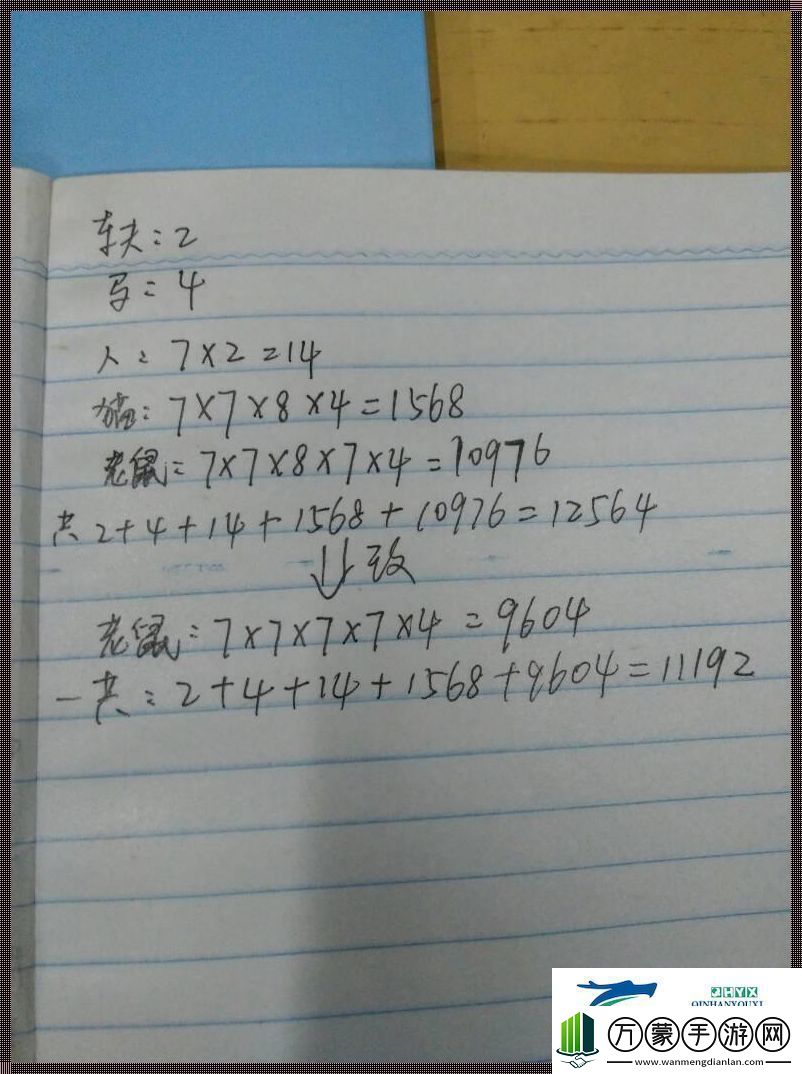 车夫：2
马：4
人：7×2=14
猫：7×7×8×4=1568
老鼠：7×7×8×7×4=10976
共 2+4+14+1568+10976=12564
↓改
老鼠：7×7×7×7×4=9604
一共：2+4+14+1568+9604=11192
QHYX
QINHANYOUXI
万蒙手游网
www.wanmengdianlan.com